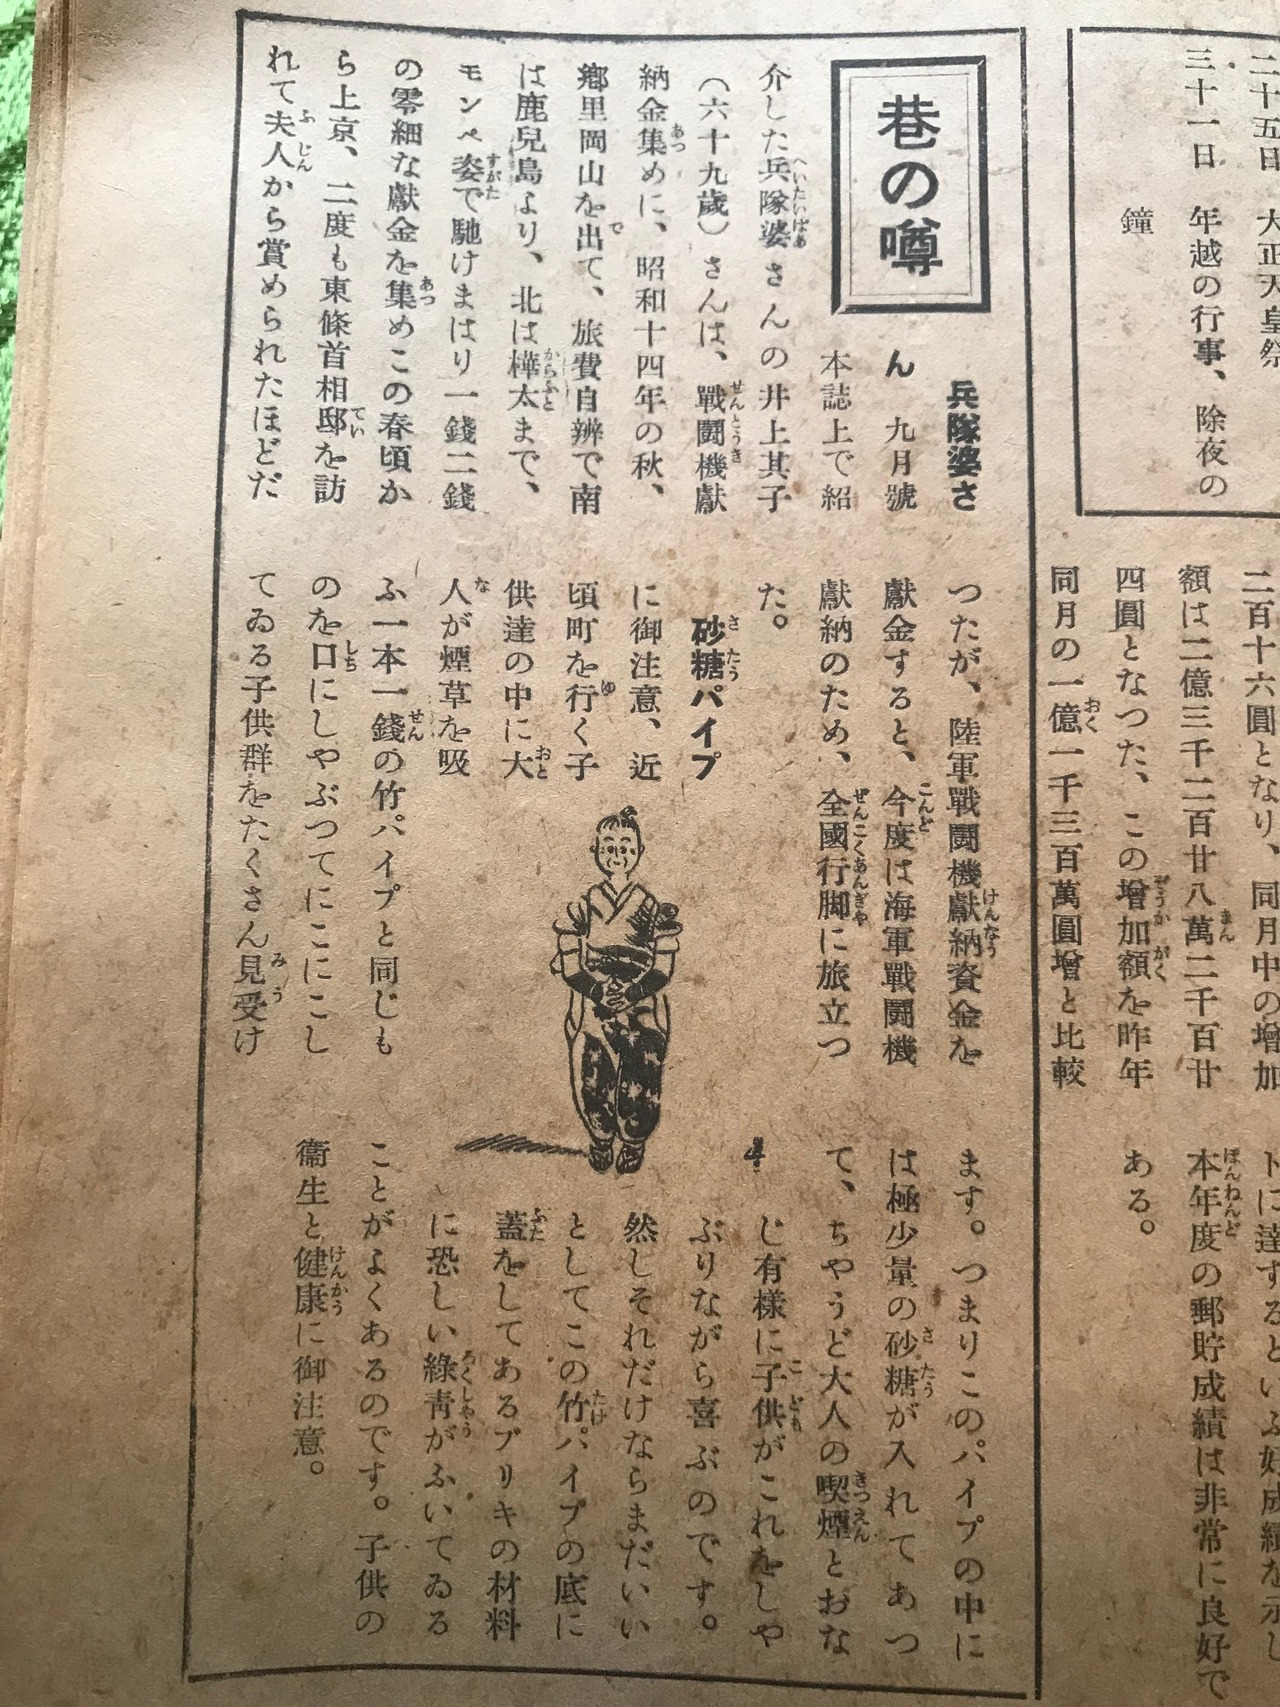 二十五日　大正天皇祭
三十一日　年越の行事、除夜の
鐘
二百十六圓となり、同月中の增加
額は二億三千二百廿八萬二千百廿
四圓となつた、この增加額を昨年
同月の一億一千三百萬圓增と比較
トに達するといふ好成績を示し
本年度の郵貯成績は非常に良好で
ある。
巷の噂
兵隊婆さ
ん　九月號
本誌上で紹
介した兵隊婆さんの井上其子
（六十九歲）さんは、戰鬪機獻
納金集めに、昭和十四年の秋、
鄕里岡山を出て、旅費自辨で南
は鹿兒島より、北は樺太まで、
モンペ姿で馳けまはり一錢二錢
の零細な獻金を集めこの春頃か
ら上京、二度も東條首相邸を訪
れて夫人から賞められたほどだ
つたが、陸軍戰鬪機獻納資金を
獻金すると、今度は海軍戰鬪機
獻納のため、全國行脚に旅立つ
た。
砂糖パイプ
に御注意、近
頃町を行く子
供達の中に大
人が煙草を吸
ふ一本一錢の竹パイプと同じも
のを口にしやぶつてにこにこし
てゐる子供群をたくさん見受け
ます。つまりこのパイプの中に
は極少量の砂糖が入れてあつ
て、ちやうど大人の喫煙とおな
じ有樣に子供がこれをしや
ぶりながら喜ぶのです。
然しそれだけならまだいい
としてこの竹パイプの底に
蓋をしてあるブリキの材料
に恐しい綠靑がふいてゐる
ことがよくあるのです。子供の
衞生と健康に御注意。